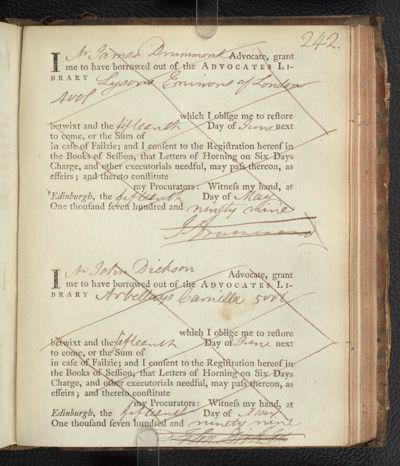 242.
I Mr James Drummond Advocate, grant
me to have borrowed out of the ADVOCATES LI-
BRARY Lysons Environs of London
4vol
which I oblige me to restore
betwixt and the fifteenth Day of June next
to come, or the Sum of
in case of Failzie; and I consent to the Registration hereof in
the Books of Session, that Letters of Horning on Six Days
Charge, and other executorials needful, may pass thereon, as
effeirs; and thereto constitute
my Procurators: Witness my hand, at
Edinburgh, the fifteenth Day of May
One thousand seven hundred and ninety nine
J Drummond
I Mr John Dickson Advocate, grant
me to have borrowed out of the ADVOCATES LI-
BRARY Camilla 5vols
which I oblige me to restore
betwixt and the fifteenth Day of June next
to come, or the Sum of
in case of Failzie; and I consent to the Registration hereof in
the Books of Session, that Letters of Horning on Six Days
Charge, and other executorials needful, may pass thereon, as
effeirs; and thereto constitute
my Procurators: Witness my hand, at
Edinburgh, the fifteenth Day of May
One thousand seven hundred and ninety nine